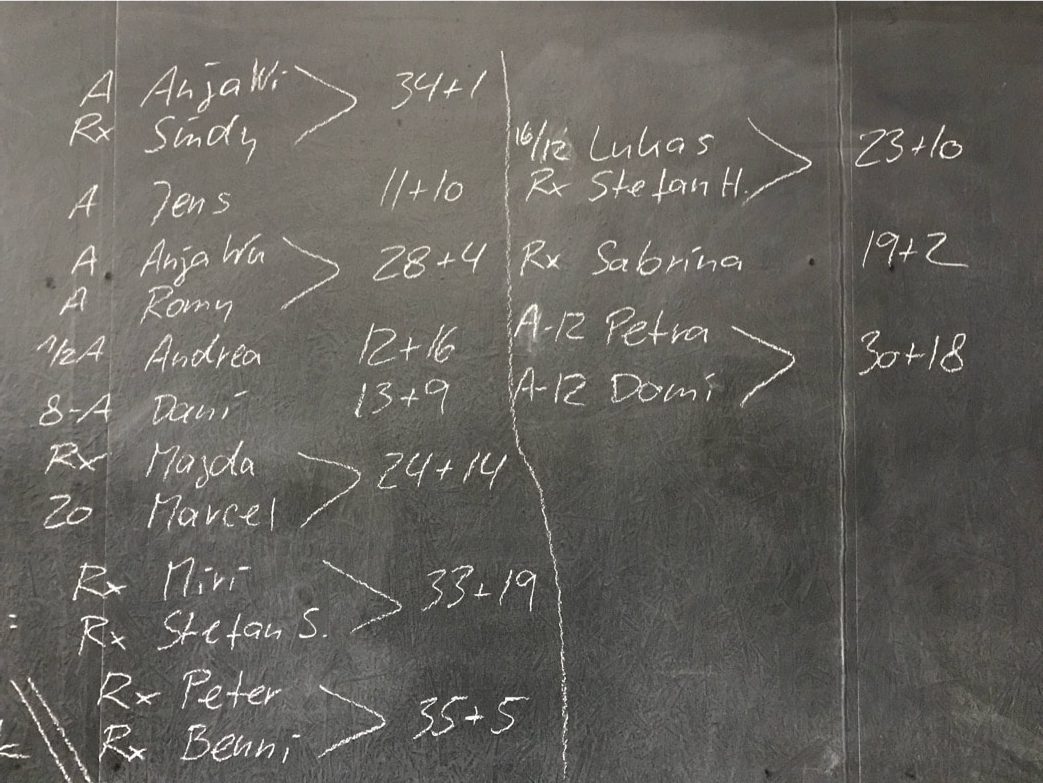 A Anja Wi 34+1
Rx Sindy
A Jens 11+10
A Anja Wu 28+4
A Romy
1/2A Andrea 12+16
8-A Dani 13+9
Rx Magda 24+14
20 Marcel
Rx Miri 33+19
Rx Stefan S.
Rx Peter 35+5
Rx Benni
16/12 Lukas 23+10
Rx Stefan H.
Rx Sabrina 19+2
A-12 Petra 30+18
A-12 Domi